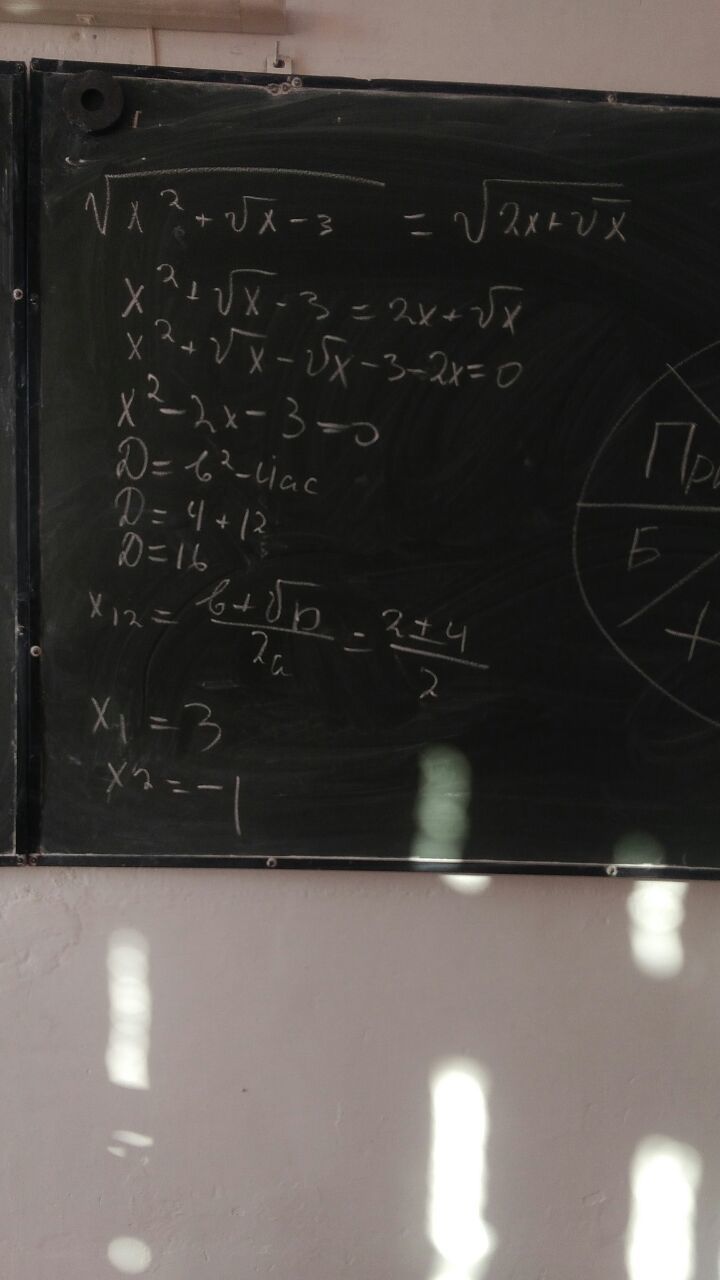 √(x² + √x - 3) = √(2x + √x)
x² + √x - 3 = 2x + √x
x² + √x - √x - 3 - 2x = 0
x² - 2x - 3 = 0
D = b² - 4ac
D = 4 + 12
D = 16
x12 = (b + √D)/2a = (2 ± 4)/2
x1 = 3
x2 = -1
При
Б